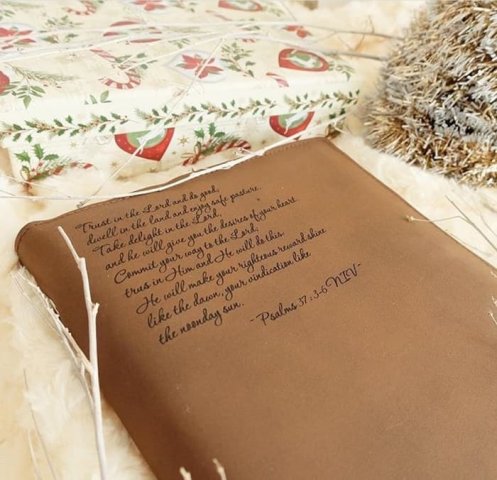 Trust in the Lord and do good,
dwell in the land and enjoy safe pasture.
Take delight in the Lord,
and he will give you the desires of your heart
Commit your way to the Lord,
trus in Him and He will do this.
He will make your righteous reward shine
like the dacon, your vindication like
the noonday sun.
~Psalms 37:3-6 NIV~